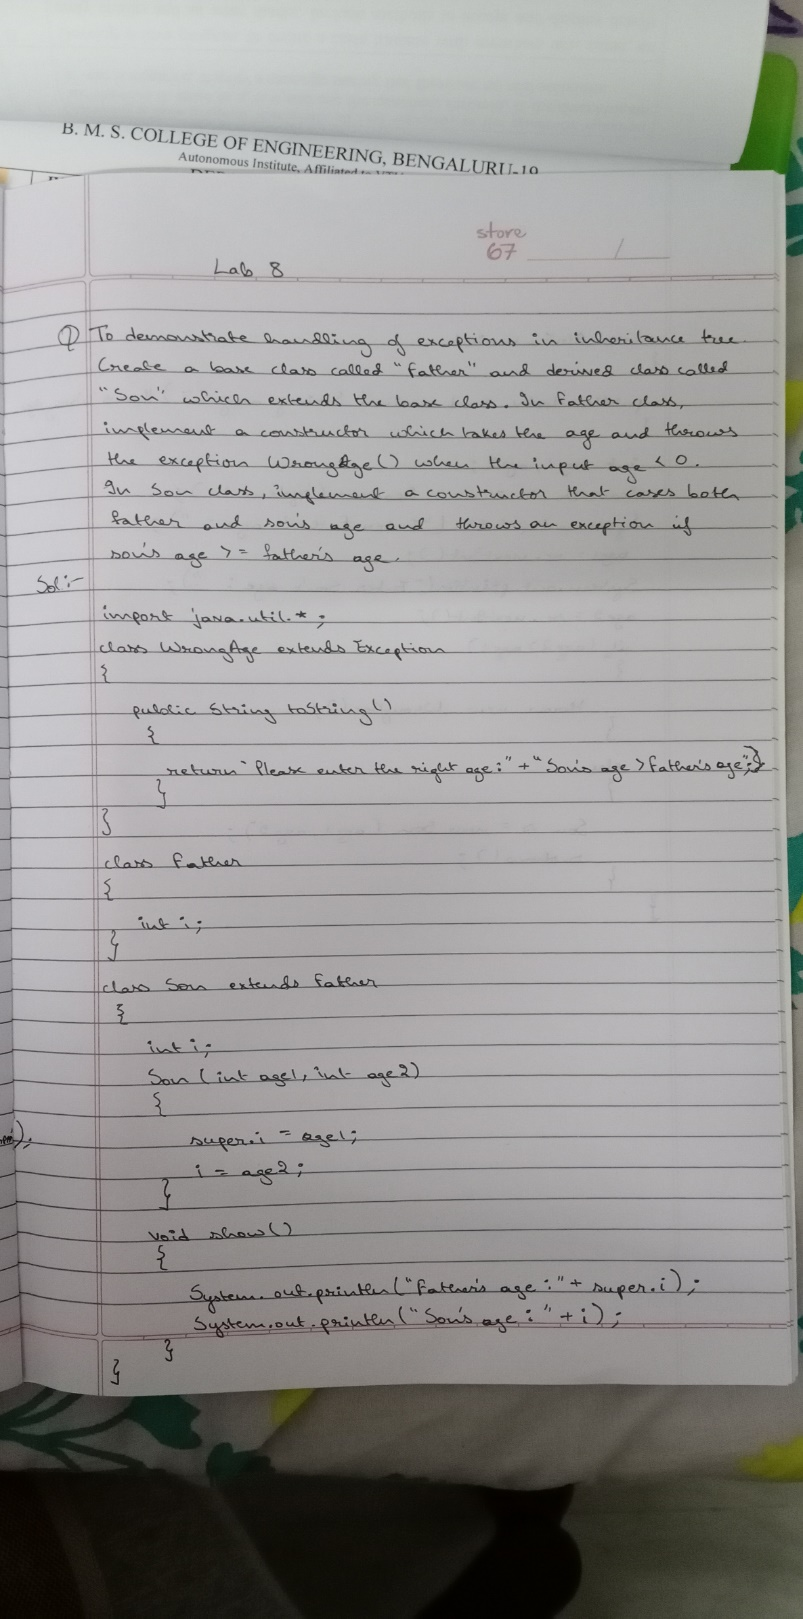 B. M. S. COLLEGE OF ENGINEERING, BENGALURU-19
Autonomous Institute, Affiliated to
store
67
Lab 8
Q To demonstrate handling of exceptions in inheritance tree.
Create a base class called "Father" and derived class called
"Son" which extends the base class. In Father class,
implement a constructor which takes the age and throws
the exception WrongAge() when the input age < 0.
In Son class, implement a constructor that cases both
father and son's age and throws an exception if
son's age >= father's age.
Sol:-
import java.util.*;
class WrongAge extends Exception
{
public String toString()
{
return "Please enter the right age:" + "Son's age > Father's age";}
}
}
class Father
{
int i;
}
class Son extends Father
{
int i;
Son (int age1, int age2)
{
);
super.i = age1;
i = age2;
}
void show()
{
System.out.println("Father's age:" + super.i);
System.out.println("Son's age:" + i);
}
}